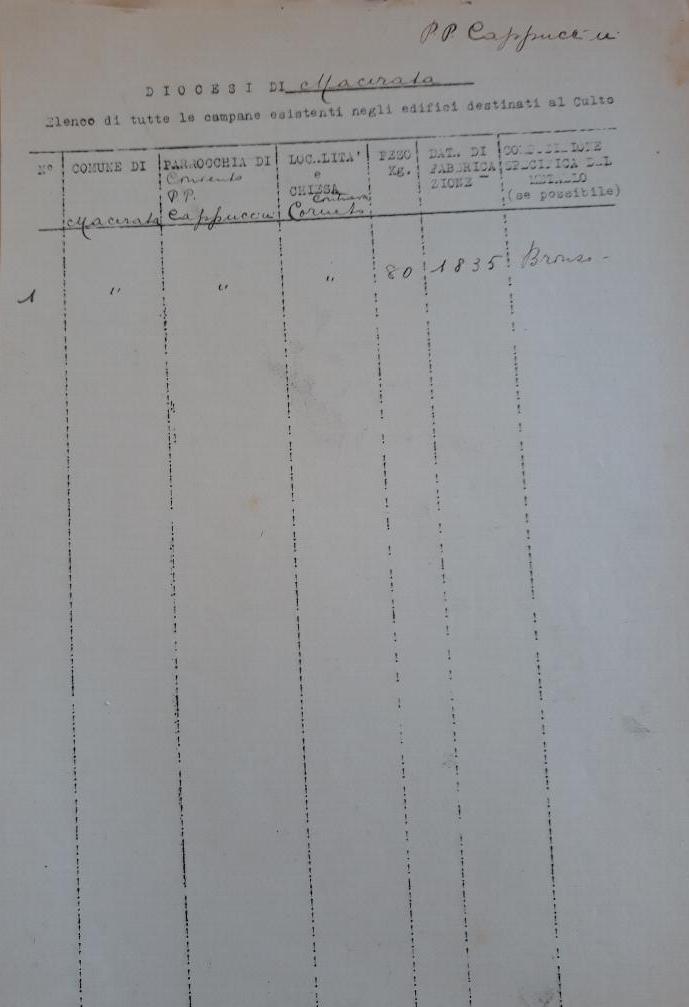 P.P. Cappuccini
DIOCESI DI Macerata
Elenco di tutte le campane esistenti negli edifici destinati al Culto
N° COMUNE DI PARROCCHIA DI LOCALITA' e CHIESA PESO Kg. DATA DI FABBRICAZIONE COMPOSIZIONE SPECIFICA DEL METALLO (se possibile)
Macerata Convento P.P. Cappuccini Contrada Corneto
1 " " " 80 1835 Bronzo -